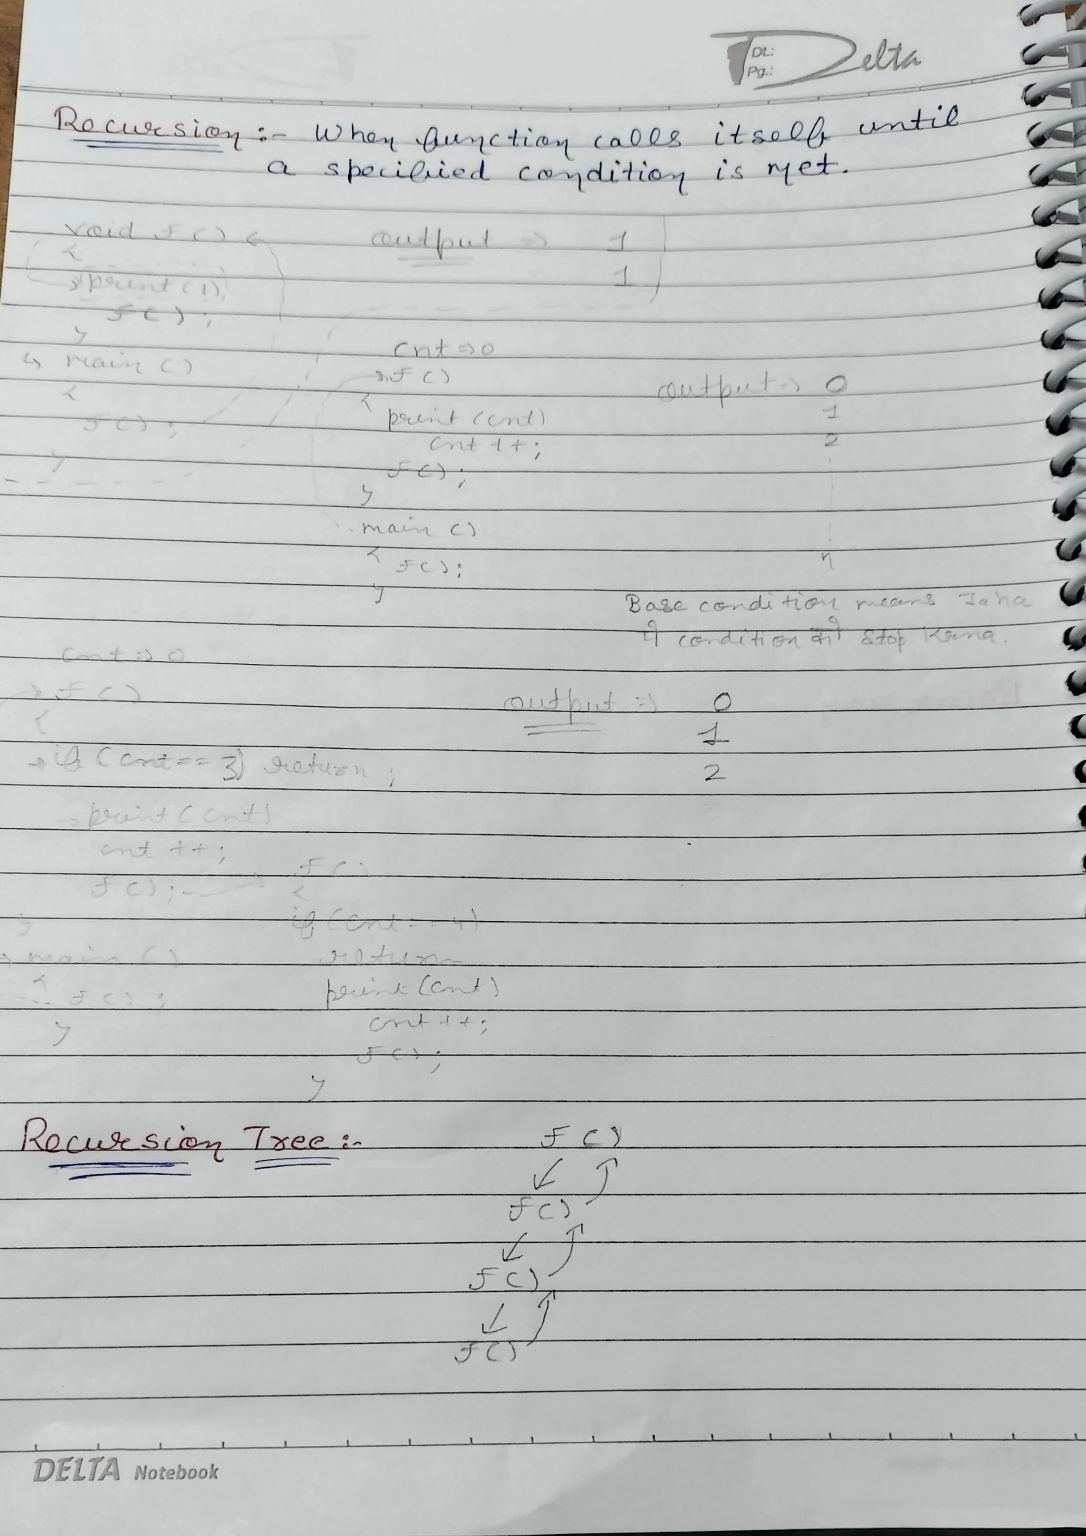 DELTA
Dt.:
Pg.:
Recursion :- When function calls itself until
a specified condition is met.
void f()
{
print(1);
f();
}
main()
{
f();
}
output => 1
1
cnt => 0
f()
{
print(cnt)
cnt++;
f();
}
main()
{ f();
}
output => 0
1
2
n
Base condition means
condition को stop krna.
cnt => 0
f()
{
if (cnt == 3) return;
print(cnt)
cnt++;
f();
}
main()
{ f();
}
output => 0
1
2
f()
{
if (cnt == 4)
return
print(cnt)
cnt++;
f();
}
Recursion Tree :-
f()
f()
f()
f()
DELTA Notebook